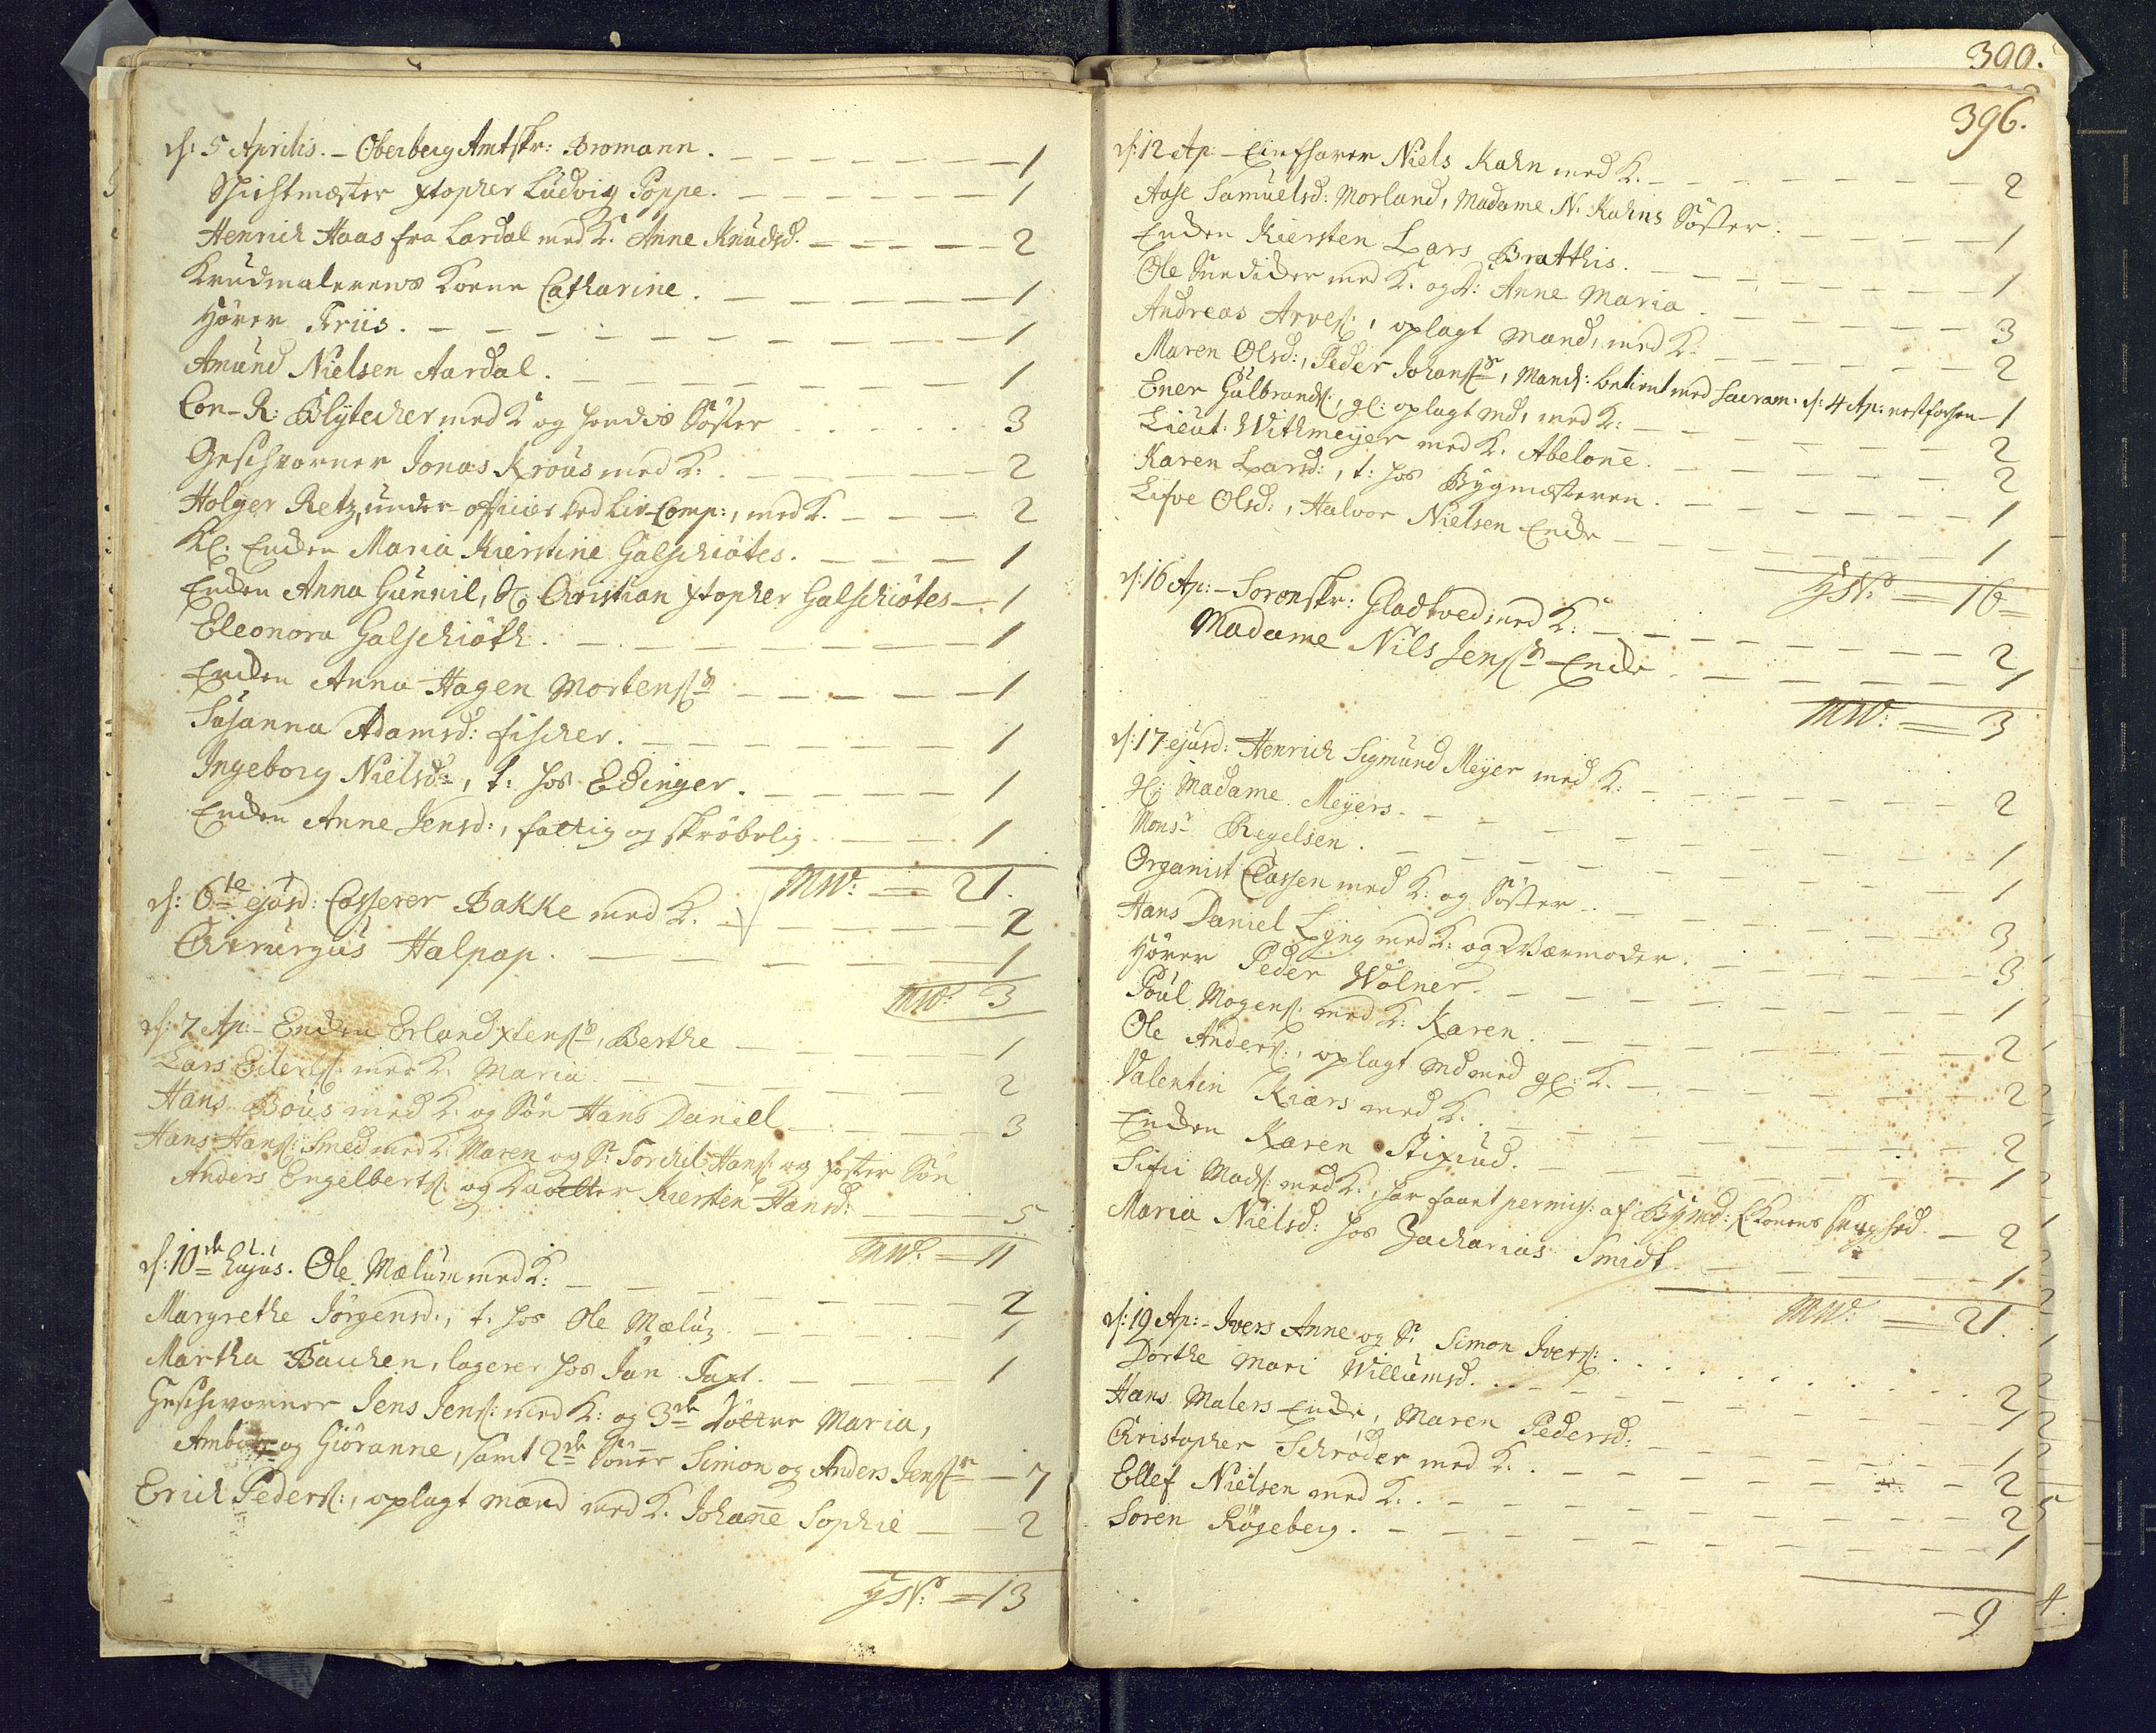 d: 5 Aprilis. - Oberberg Amtskr: Bromann. - 1
Schichtmæster xtopher Ludvig Poppe. - 1
Henrich Haas fra Lardal med K. Anne Knudsd. - 2
Krudmalerens Koene Catharine. - 1
Hörer Friis. - 1
Amund Nielsen Aardal. - 1
Con-R: Blÿtecher med K og hendis Söster - 3
Geschworner Jonas Krous med K: - 2
Holger Retz, under-officier ved Liv-Comp:, med K. - 2
Kl: Enken Maria Kierstine Galschiötes. - 1
Enken Anna Gunnil, Sl: Christian xtopher Galschiötes - 1
Eleonora Galschiöth. - 1
Enken Anna Hagen Mortens - 1
Susanna Adamsd: Fischer. - 1
Ingeborg Nielsd:, t: hos Edinger. - 1
Enken Anne Jensd:, fattig og skröbelig - 1
NB: = 21.
d: 6te ejusd: Casserer Bakke med K. - 2
Chirurgus Halpap. - 1
NB: 3
d: 7 Ap: - Enken Erland xtens, Berthe - 1
Lars Eilers: med K. Maria - 2
Hans Bous med K. og Sön Hans Daniel - 3
Hans Hans: Smed med K. Maren og S: Torchel Hans: og foster Sön
Anders Engelberts: og Daatter Kiersten Hansd: - 5
NB: = 11
d: 10de hujus. Ole Mælum med K: - 2
Margrethe Jörgensd:, t: hos Ole Mælum - 1
Martha Bachen, logerer hos Jan - 1
Geschworner Jens Jens: med K: og 3de Döttre Maria,
og Giöranne, samt 2de Sönner Simon og Anders Jens - 7
Erich Peders:, oplagt mand med K. Johanne Sophie - 2
= 13
390.
396.
d: 12 Ap: - Einfharer Niels Kahn med K. - 2
Aase Samuelsd: Morland, Madame N. Kahns Söster. - 1
Enken Kiersten Lars Bratthis. - 1
Ole med K. og D: Anne Maria - 3
Andreas Arves:, oplagt mand, med K. - 2
Maren Olsd:, Peder Johans, Mand: betient med Sacram: d: 4 Ap: nestforhen - 1
Ener Gulbrands:, gl: oplagt md, med K: - 2
Lieut: Withmeÿer med K. Abelone. - 2
Karen Larsd:, t: hos Bygmæsteren. - 1
Lisve Olsd:, Halvor Nielsen Enke - 1
= 16
d: 16 Ap: - Sorenskr: Gladtved med K: - 2
Madame Nils Jens Enke - 1
NB: = 3
d: 17 ejusd: Henrich Sigmund Meÿer med K: - 2
gl: Madame Meÿers. - 1
Monsr Regelsen. - 1
Organist Classen med K: og Söster - 3
Hans Daniel Lyng med K: og Værmoder. - 3
Hörer Peder Wölner. - 1
Poul Mogens: med K: Karen. - 2
Ole Anders:, oplagt md med gl: K. - 2
Valentin Kiærs med K. - 2
Enken Karen Stixrud. - 1
Sifvi Mads: med K:, har faaet permiss: af Bÿmd: Konens svaghed. - 2
Maria Nielsd: hos Zacharias Smidt. - 1
NB: = 21.
d: 19 Ap: - Ivers Anne og S: Simon Ivers: - 2
Dorthe Mari Willumsd. - 1
Hans Malers Enke, Maren Pedersd: - 1
Christopher Schröder med K. - 2
Ellef Nielsen med K: - 2
Soren Rögeberg. - 1
- 9